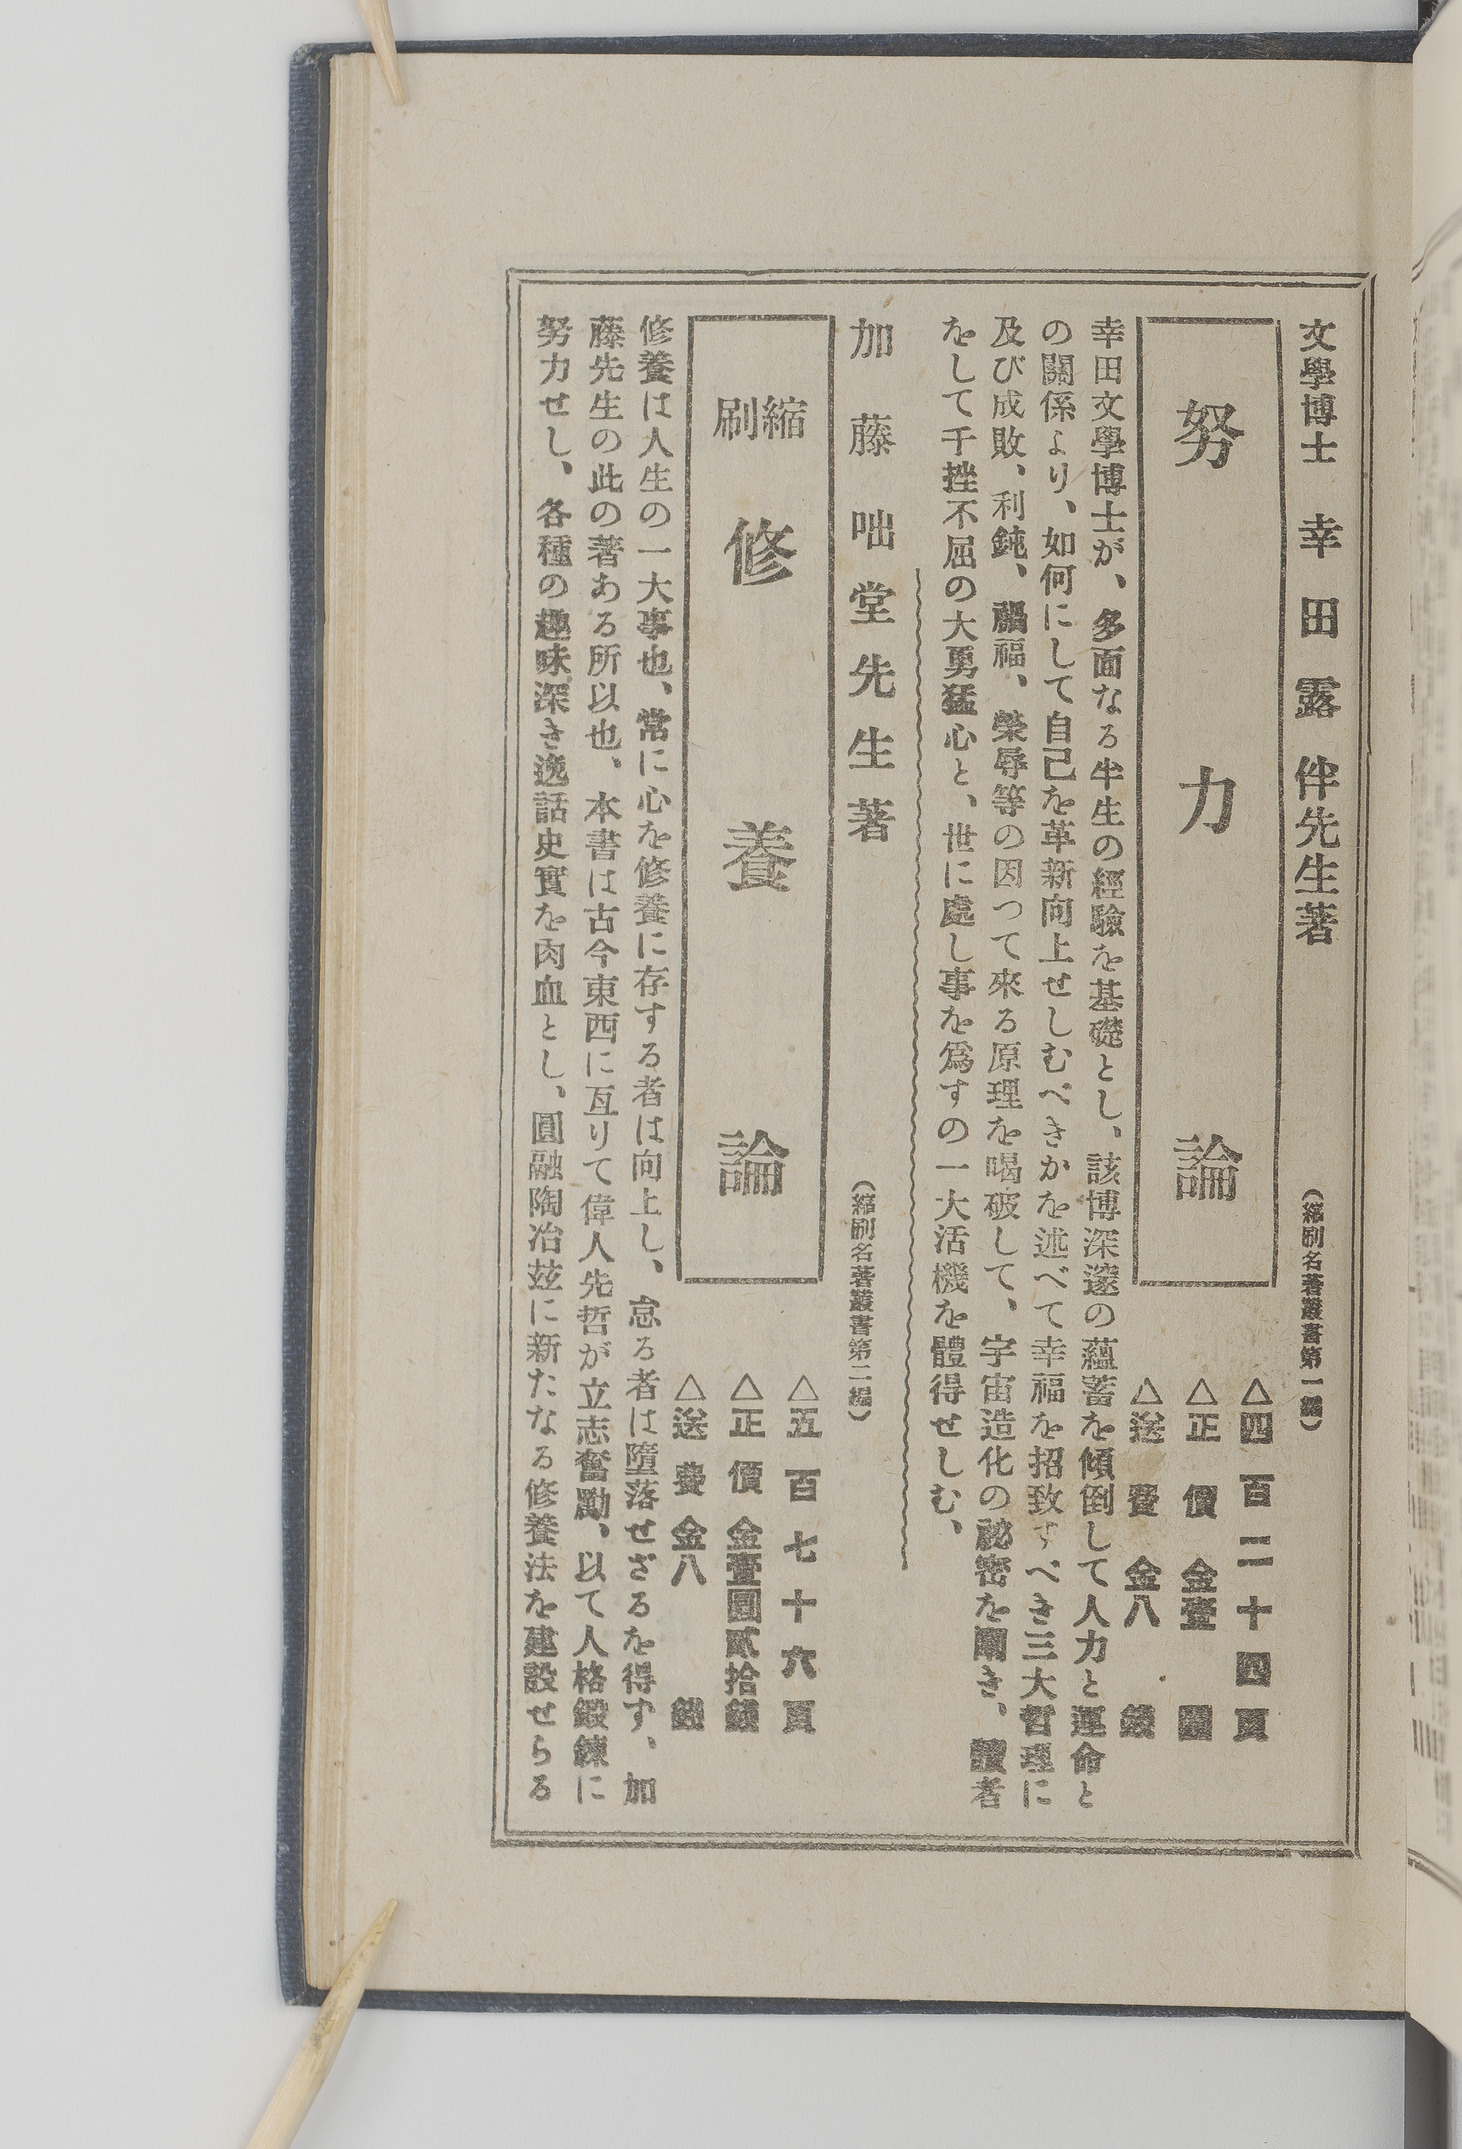 文學博士 幸田露伴先生著 （縮刷名著叢書第一編）
努力論
△四百二十四頁
△正價 金壹圓
△送費 金八錢
幸田文學博士が、多面なる半生の經驗を基礎とし、該博深邃の蘊蓄を傾倒して人力と運命と
の關係より、如何にして自己を革新向上せしむべきかを述べて幸福を招致すべき三大哲理に
及び成敗、利鈍、禍福、榮辱等の因つて來る原理を喝破して、宇宙造化の祕密を闡き、讀者
をして千挫不屈の大勇猛心と、世に處し事を爲すの一大活機を體得せしむ、
加藤咄堂先生著 （縮刷名著叢書第二編）
縮刷 修養論
△五百七十六頁
△正價 金壹圓貳拾錢
△送費 金八錢
修養は人生の一大事也、常に心を修養に存する者は向上し、怠る者は墮落せざるを得ず、加
藤先生の此の著ある所以也、本書は古今東西に亙りて偉人先哲が立志奮勵、以て人格鍛鍊に
努力せし、各種の趣味深き逸話史實を肉血とし、圓融陶冶玆に新たなる修養法を建設せらる